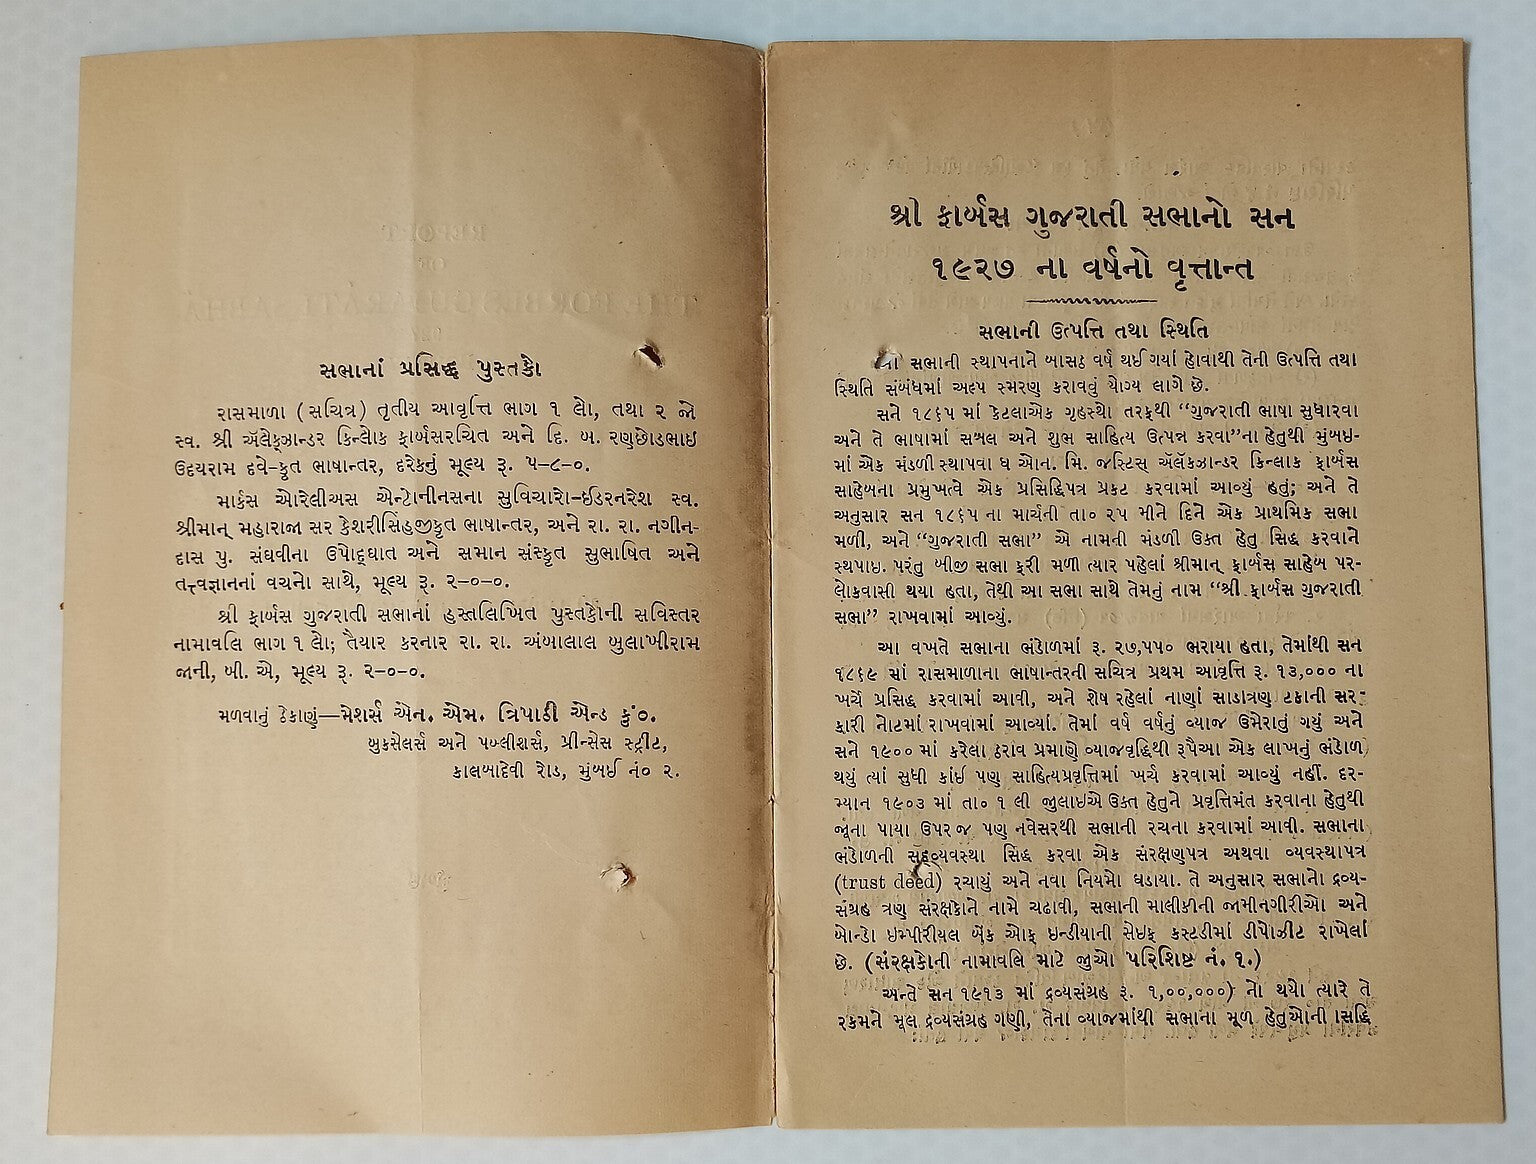 સભાનાં પ્રસિદ્ધ પુસ્તકો
રાસમાળા (સચિત્ર) તૃતીય આવૃત્તિ ભાગ ૧ લો, તથા ૨ જો
સ્વ. શ્રી ઍલેક્ઝાન્ડર કિન્લોક ફાર્બસરચિત અને દિ. બ. રણછોડભાઇ
ઉદયરામ દવે-કૃત ભાષાન્તર, દરેકનું મૂલ્ય રૂ. ૫-૮-૦.
માર્કસ ઑરેલીઅસ એન્ટોનીનસના સુવિચારો-ઇડરનરેશ સ્વ.
શ્રીમાન્ મહારાજા સર કેશરીસિંહજીકૃત ભાષાન્તર, અને રા. રા. નગીન-
દાસ પુ. સંઘવીના ઉપોદ્ઘાત અને સમાન સંસ્કૃત સુભાષિત અને
તત્ત્વજ્ઞાનનાં વચનો સાથે, મૂલ્ય રૂ. ૨-૦-૦.
શ્રી ફાર્બસ ગુજરાતી સભાનાં હસ્તલિખિત પુસ્તકોની સવિસ્તર
નામાવલિ ભાગ ૧ લો; તૈયાર કરનાર રા. રા. અંબાલાલ બુલાખીરામ
જાની, બી. એ, મૂલ્ય રૂ. ૨-૦-૦.
મળવાનું ઠેકાણું—મેશર્સ એન. એમ. ત્રિપાઠી એન્ડ કું૦.
બુકસેલર્સ અને પબ્લીશર્સ, પ્રીન્સેસ સ્ટ્રીટ,
કાલબાદેવી રોડ, મુંબઈ નં૦ ૨.
શ્રી ફાર્બસ ગુજરાતી સભાનો સન
૧૯૨૭ ના વર્ષનો વૃત્તાન્ત
સભાની ઉત્પત્તિ તથા સ્થિતિ
આ સભાની સ્થાપનાને બાસઠ વર્ષ થઈ ગયાં હોવાથી તેની ઉત્પત્તિ તથા
સ્થિતિ સંબંધમાં અલ્પ સ્મરણ કરાવવું યોગ્ય લાગે છે.
સને ૧૮૬૫ માં કેટલાએક ગૃહસ્થો તરફથી “ગુજરાતી ભાષા સુધારવા
અને તે ભાષામાં સબલ અને શુભ સાહિત્ય ઉત્પન્ન કરવા”ના હેતુથી મુંબઇ-
માં એક મંડળી સ્થાપવા ધ ઓન. મિ. જસ્ટિસ્ ઍલૅકઝાન્ડર કિન્લાક ફાર્બસ
સાહેબના પ્રમુખત્વે એક પ્રસિદ્ધિપત્ર પ્રકટ કરવામાં આવ્યું હતું; અને તે
અનુસાર સન ૧૮૬૫ ના માર્ચની તા૦ ૨૫ મીને દિને એક પ્રાથમિક સભા
મળી, અને “ગુજરાતી સભા” એ નામની મંડળી ઉક્ત હેતુ સિદ્ધ કરવાને
સ્થપાઇ. પરંતુ બીજી સભા ફરી મળી ત્યાર પહેલાં શ્રીમાન્ ફાર્બસ સાહેબ પર-
લોકવાસી થયા હતા, તેથી આ સભા સાથે તેમનું નામ “શ્રી ફાર્બસ ગુજરાતી
સભા” રાખવામાં આવ્યું.
આ વખતે સભાના ભંડોળમાં રૂ. ૨૭,૫૫૦ ભરાયા હતા, તેમાંથી સન
૧૮૬૯ માં રાસમાળાના ભાષાન્તરની સચિત્ર પ્રથમ આવૃત્તિ રૂ. ૧૩,૦૦૦ ના
ખર્ચે પ્રસિદ્ધ કરવામાં આવી, અને શેષ રહેલાં નાણાં સાડાત્રણ ટકાની સર-
કારી નોટમાં રાખવામાં આવ્યાં. તેમાં વર્ષે વર્ષનું વ્યાજ ઉમેરાતું ગયું અને
સને ૧૯૦૦ માં કરેલા ઠરાવ પ્રમાણે વ્યાજવૃદ્ધિથી રૂપૈઆ એક લાખનું ભંડોળ
થયું ત્યાં સુધી કાંઈ પણ સાહિત્યપ્રવૃત્તિમાં ખર્ચ કરવામાં આવ્યું નહીં. દર-
મ્યાન ૧૯૦૩ માં તા૦ ૧ લી જુલાઇએ ઉક્ત હેતુને પ્રવૃત્તિમંત કરવાના હેતુથી
જૂના પાયા ઉપર જ પણ નવેસરથી સભાની રચના કરવામાં આવી. સભાના
ભંડોળની સદ્વ્યવસ્થા સિદ્ધ કરવા એક સંરક્ષણપત્ર અથવા વ્યવસ્થાપત્ર
(trust deed) રચાયું અને નવા નિયમો ઘડાયા. તે અનુસાર સભાનો દ્રવ્ય-
સંગ્રહ ત્રણ સંરક્ષકોને નામે ચઢાવી, સભાની માલીકીની જામીનગીરીઓ અને
બોન્ડો ઇમ્પીરીયલ બૅંક ઑફ ઇન્ડીયાની સેઇફ કસ્ટડીમાં ડીપોઝીટ રાખેલાં
છે. (સંરક્ષકોની નામાવલિ માટે જુઓ પરિશિષ્ટ નં. ૧.)
અન્તે સન ૧૯૧૩ માં દ્રવ્યસંગ્રહ રૂ. ૧,૦૦,૦૦૦) નો થયો ત્યારે તે
રકમને મૂલ દ્રવ્યસંગ્રહ ગણી, તેના વ્યાજમાંથી સભાના મૂળ હેતુઓની સિદ્ધિ